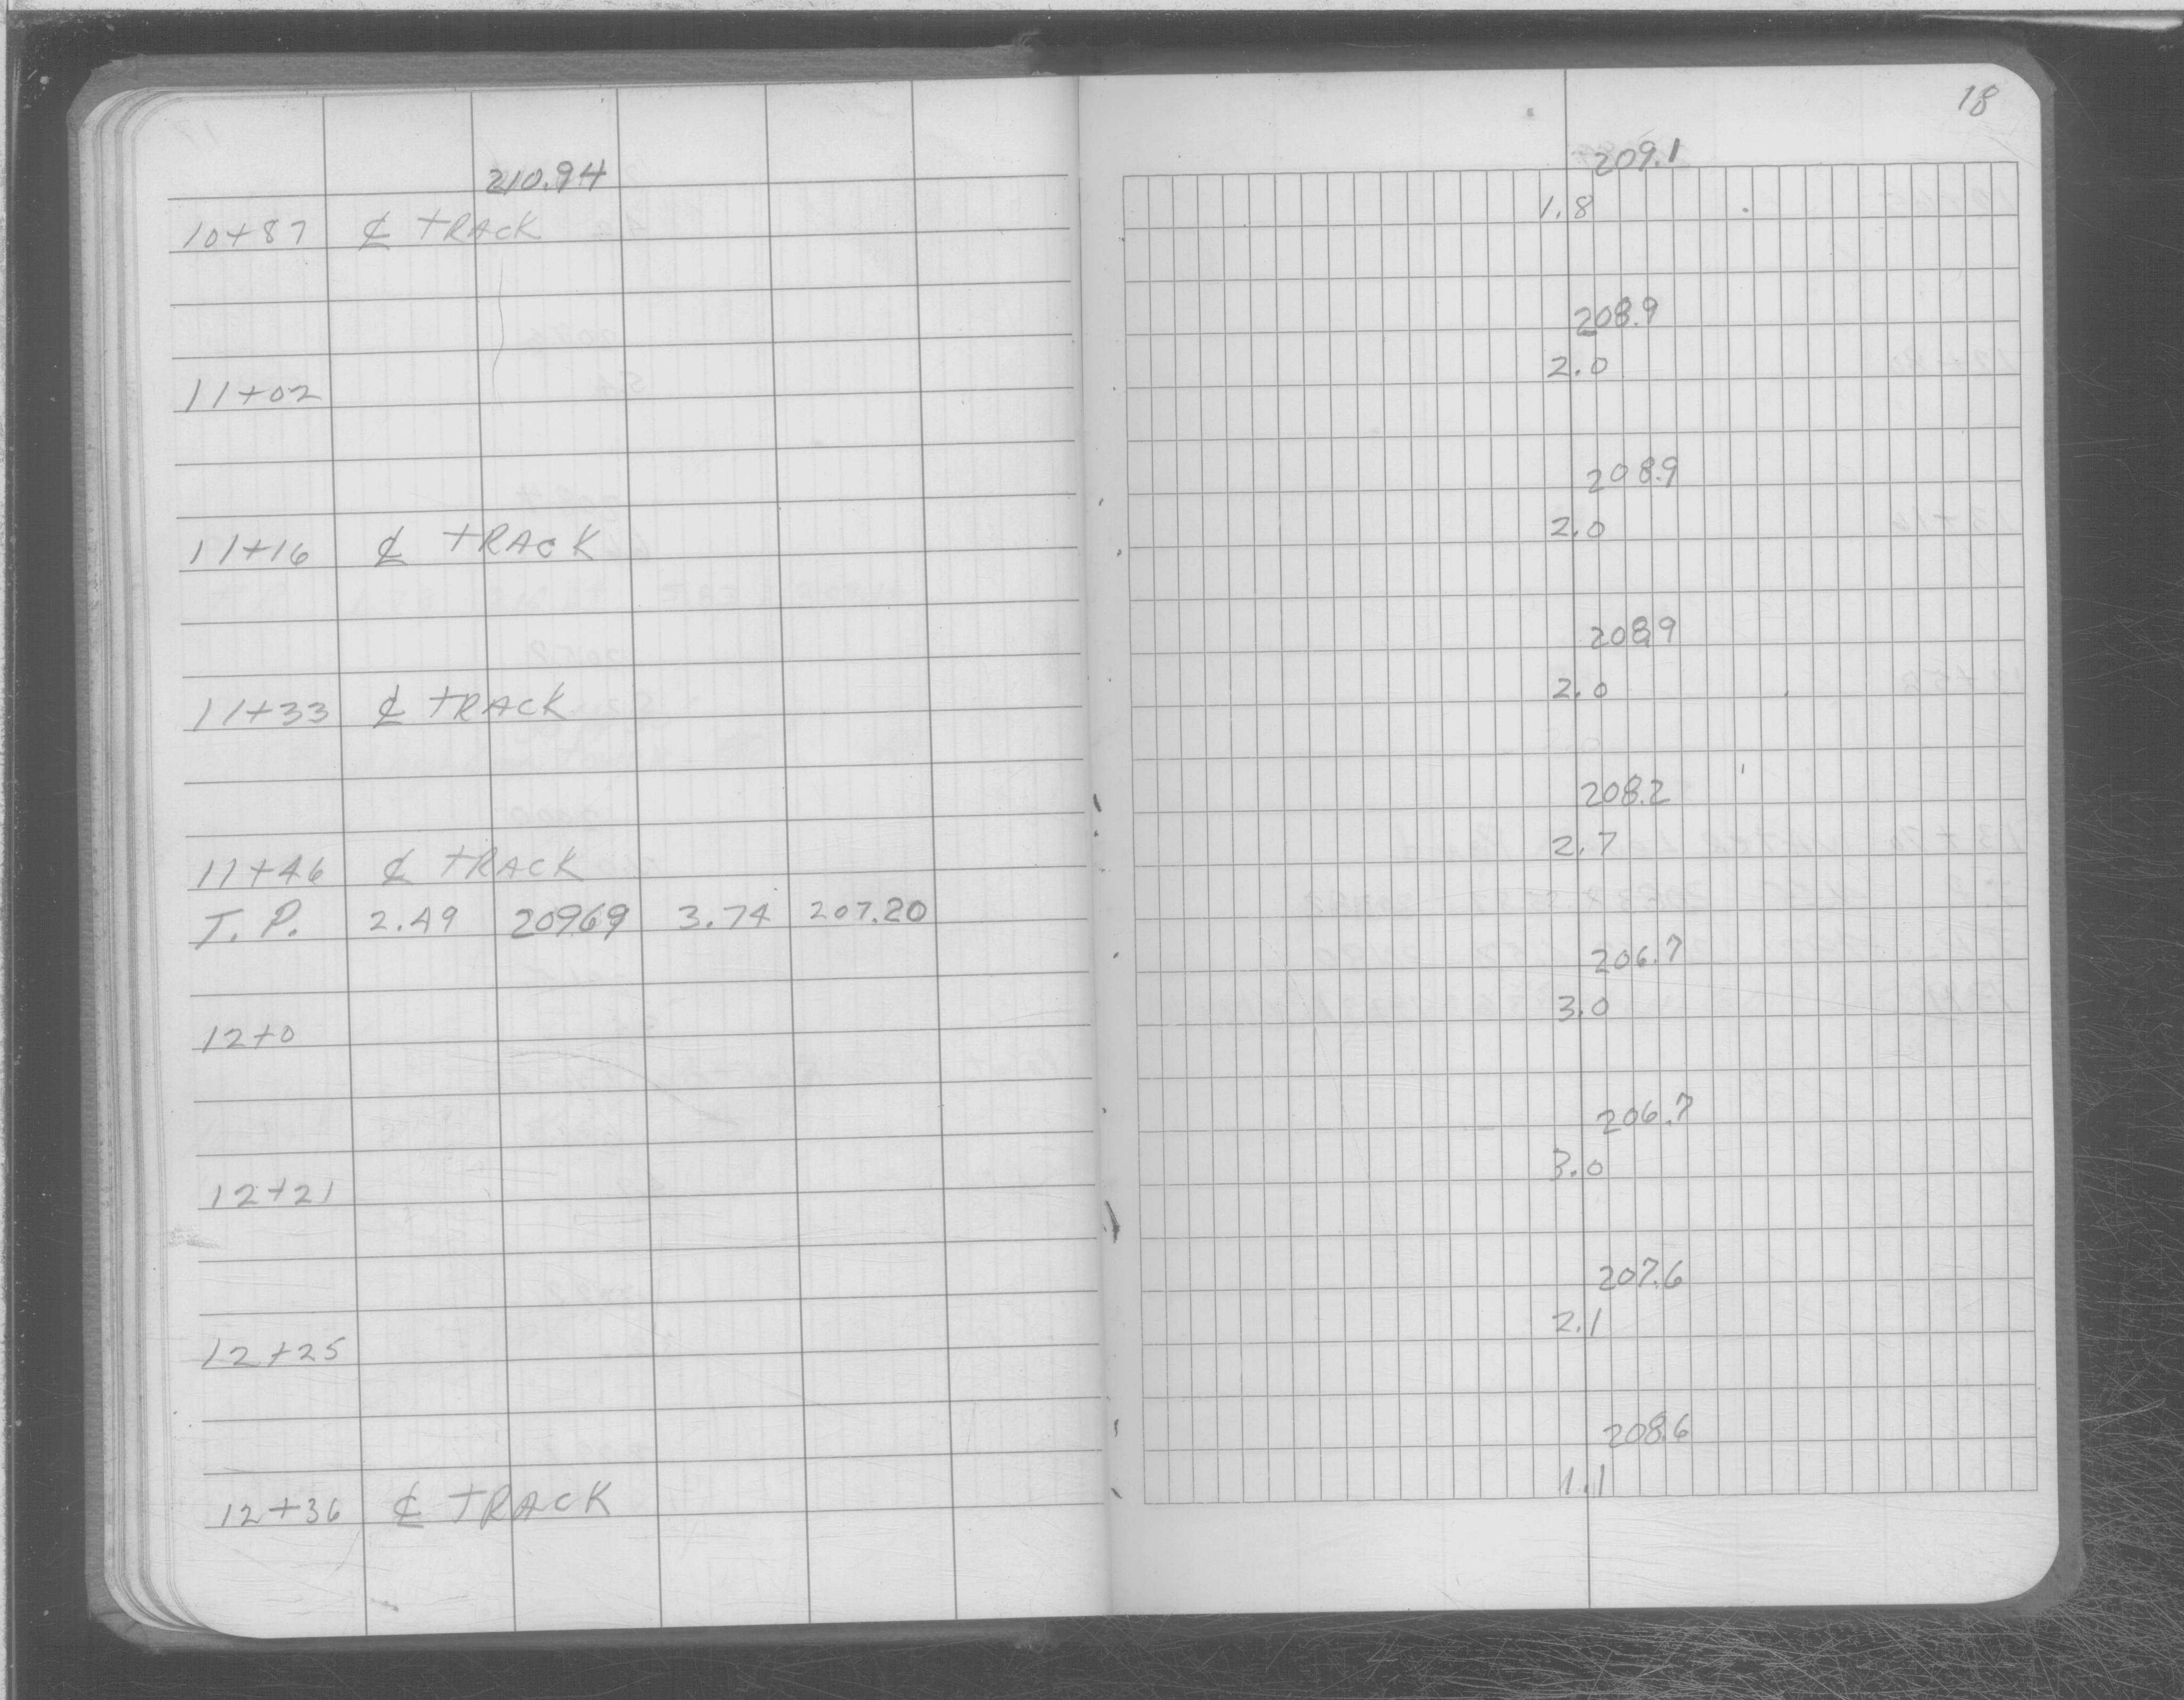 18
210.94 209.1
10+87 ℄ TRACK 1.8
208.9
11+02 2.0
208.9
11+16 ℄ TRACK 2.0
208.9
11+33 ℄ TRACK 2.0
208.2
11+46 ℄ TRACK 2.7
T.P. 2.49 209.69 3.74 207.20
206.7
12+0 3.0
206.7
12+21 3.0
207.6
12+25 2.1
208.6
12+36 ℄ TRACK 1.1